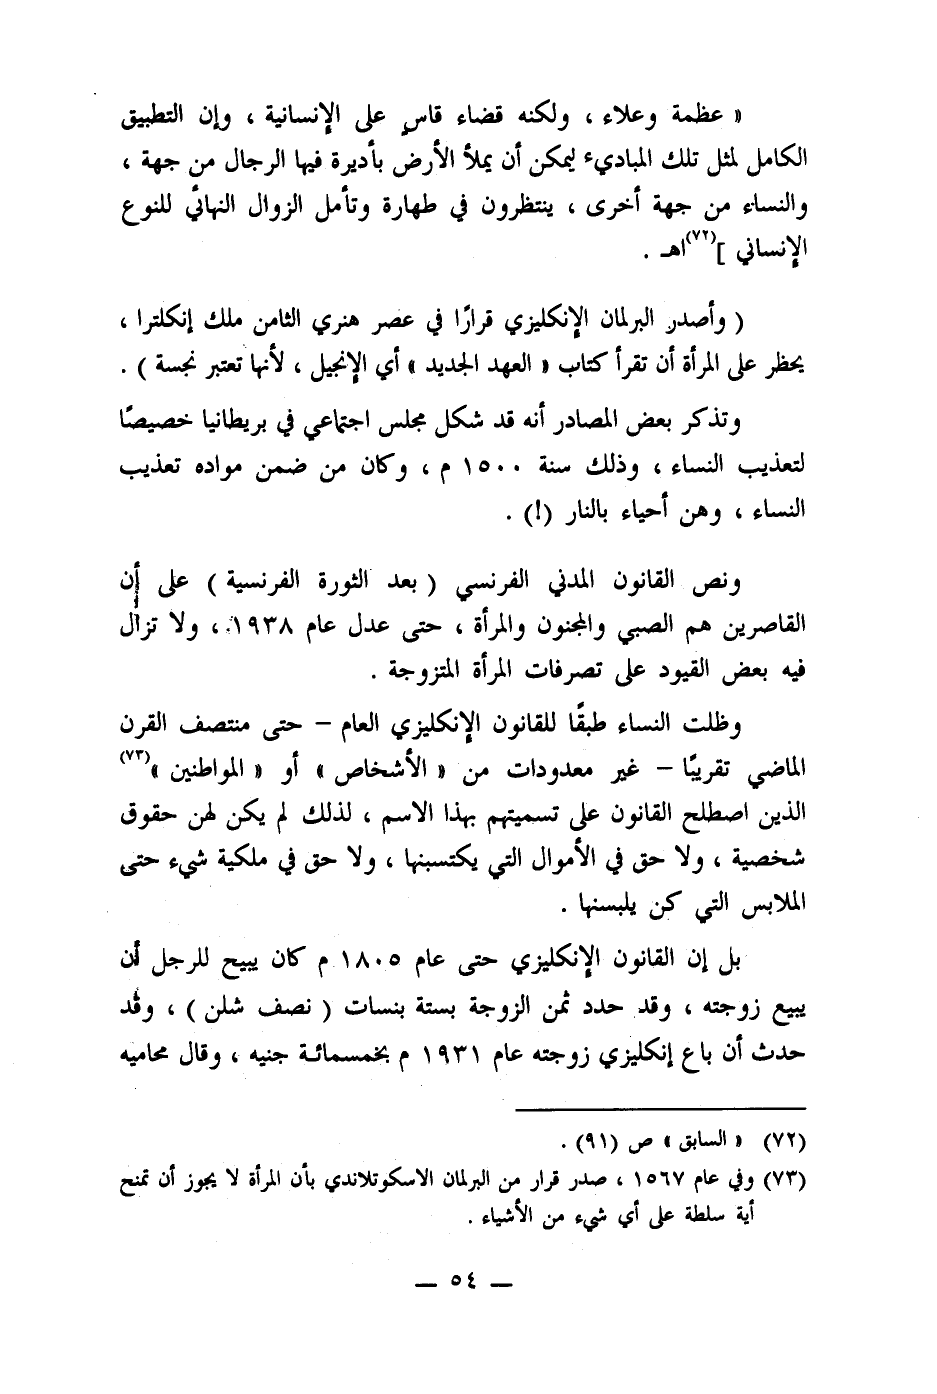 « عظمة وعلاء ، ولكنه قضاء قاسٍ على الإنسانية ، وإن التطبيق
الكامل لمثل تلك المباديء ليمكن أن يملأ الأرض بأديرة فيها الرجال من جهة ،
والنساء من جهة أخرى ، ينتظرون في طهارة وتأمل الزوال النهائي للنوع
الإنساني ](٧٢)اهـ .
( وأصدر البرلمان الإنكليزي قرارًا في عصر هنري الثامن ملك إنكلترا ،
يحظر على المرأة أن تقرأ كتاب « العهد الجديد » أي الإنجيل ، لأنها تعتبر نجسة ) .
وتذكر بعض المصادر أنه قد شكل مجلس اجتماعي في بريطانيا خصيصًا
لتعذيب النساء ، وذلك سنة ١٥٠٠ م ، وكان من ضمن مواده تعذيب
النساء ، وهن أحياء بالنار (!) .
ونص القانون المدني الفرنسي ( بعد الثورة الفرنسية ) على أن
القاصرين هم الصبي والمجنون والمرأة ، حتى عدل عام ١٩٣٨ ، ولا تزال
فيه بعض القيود على تصرفات المرأة المتزوجة .
وظلت النساء طبقًا للقانون الإنكليزي العام – حتى منتصف القرن
الماضي تقريبًا – غير معدودات من « الأشخاص » أو « المواطنين »(٧٣)
الذين اصطلح القانون على تسميتهم بهذا الاسم ، لذلك لم يكن لهن حقوق
شخصية ، ولا حق في الأموال التي يكتسبنها ، ولا حق في ملكية شيء حتى
الملابس التي كن يلبسنها .
بل إن القانون الإنكليزي حتى عام ١٨٠٥ م كان يبيح للرجل أن
يبيع زوجته ، وقد حدد ثمن الزوجة بستة بنسات ( نصف شلن ) ، وقد
حدث أن باع إنكليزي زوجته عام ١٩٣١ م بخمسمائة جنيه ، وقال محاميه
(٧٢) « السابق » ص (٩١) .
(٧٣) وفي عام ١٥٦٧ ، صدر قرار من البرلمان الاسكوتلاندي بأن المرأة لا يجوز أن تمنح
أية سلطة على أي شيء من الأشياء .
— ٥٤ —